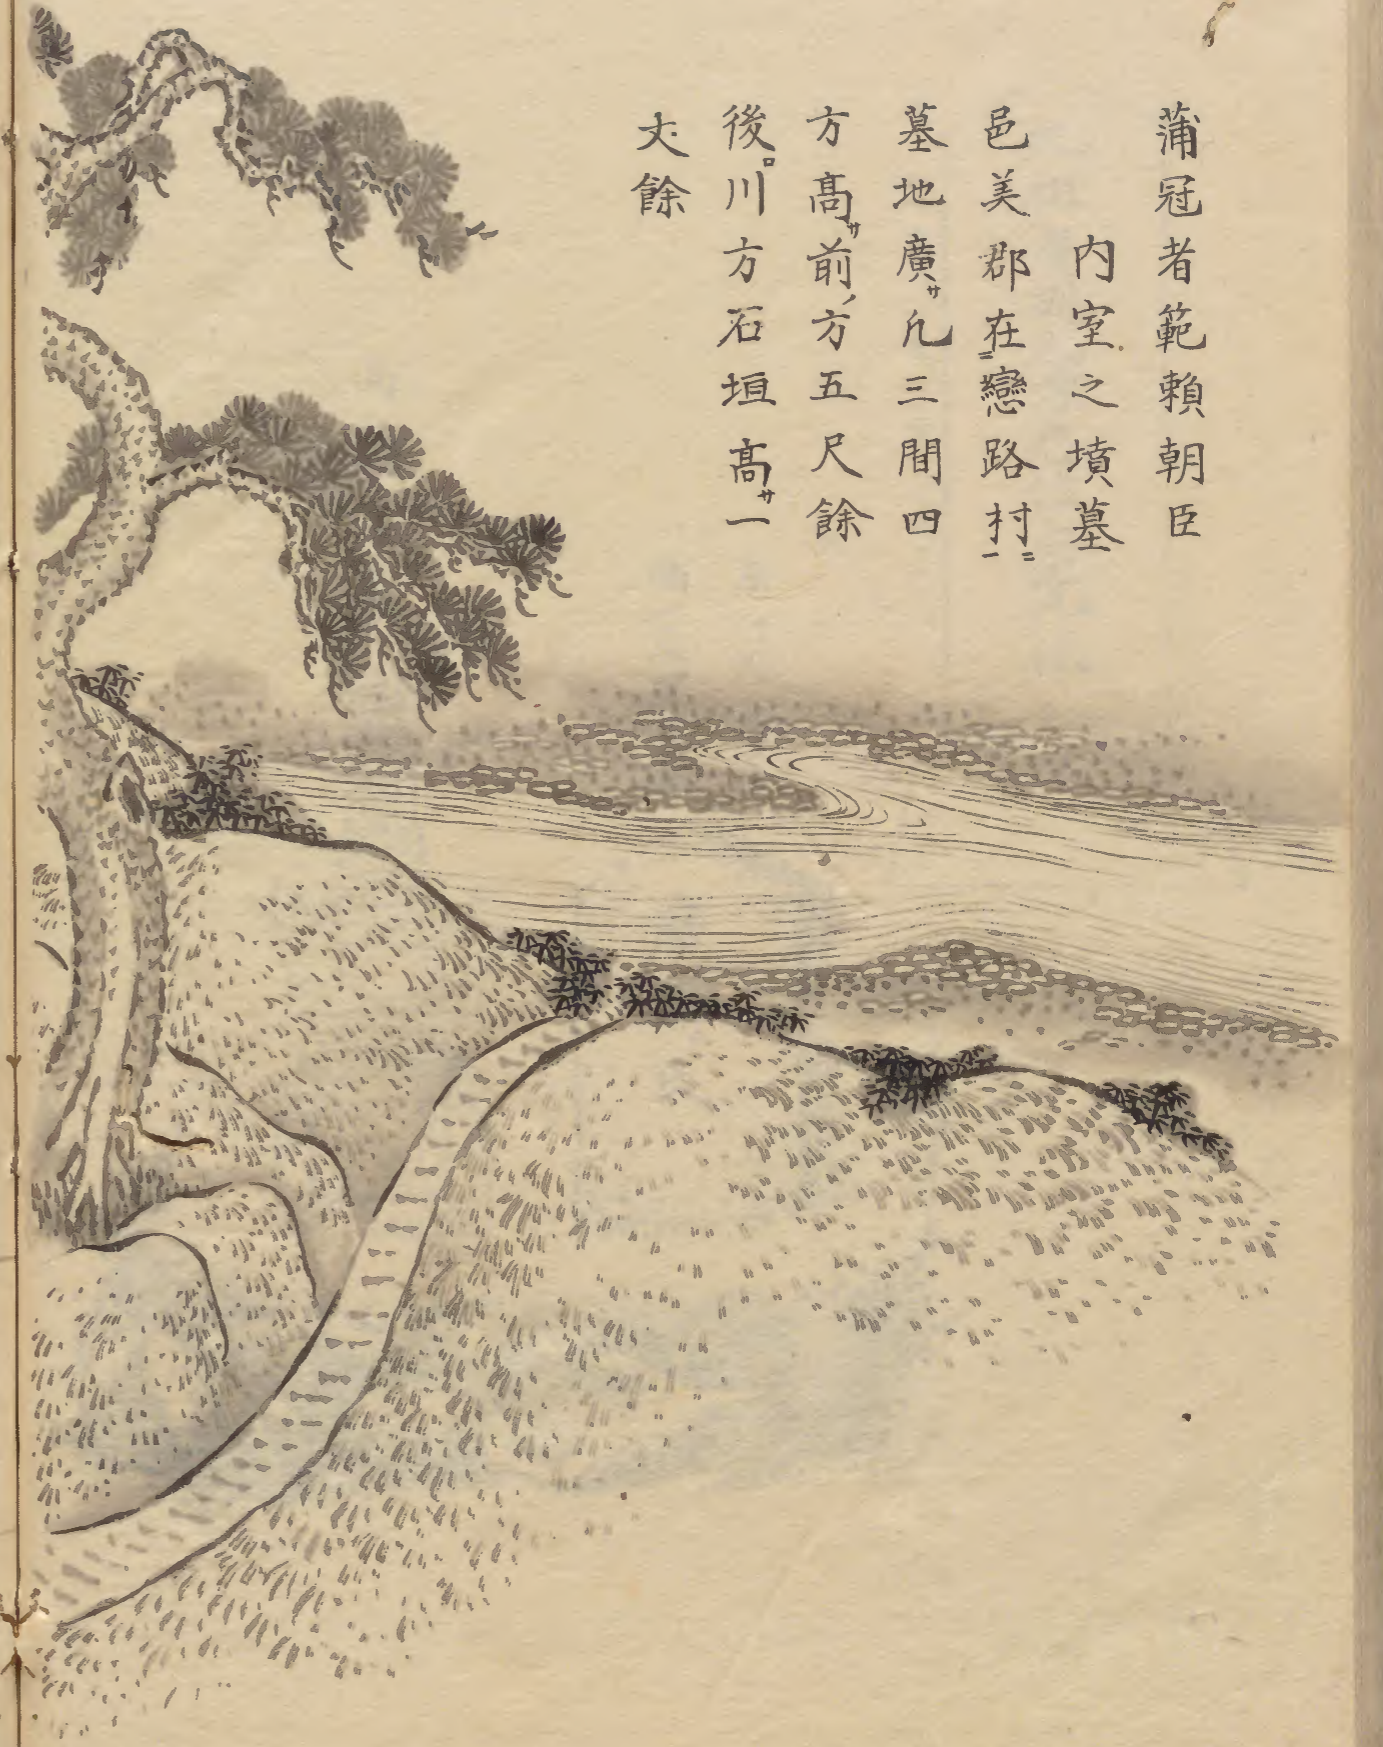 蒲冠者範頼朝臣
内室之墳墓
邑美郡在＝戀路村＝一
墓地廣サ凢三間四
方高サ前ノ方五尺餘
後ロ川方石垣高サ一
丈餘